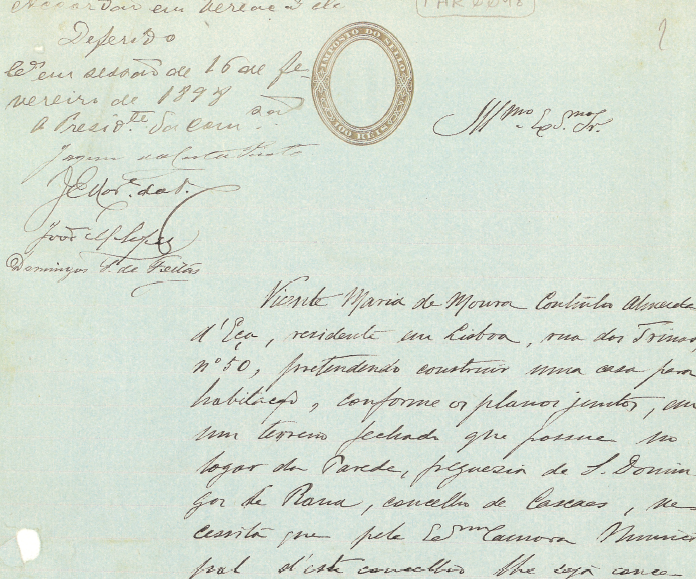 Accordão em vereação de
Deferido
em sessão de 16 de fe-
vereiro de 1898
O Presid.te da com.são
Joaquim da Costa
João Lopes
Domingos de Freitas
IMPOSTO DO SELLO
100 RÉIS
Ill.mo e Ex.mo Sr.
Vicente Maria de Moura Coutinho Almeida
d'Eça, residente em Lisboa, rua das Trinas
nº 50, pretendendo construir uma casa para
habitação, conforme os planos juntos, em
um terreno fechado que possue no
logar da Parede, freguezia de S. Domin
gos de Rana, concelho de Cascaes, ne-
cessita que pela Ex.ma Camara Munici
pal d'este concelho lhe seja conce